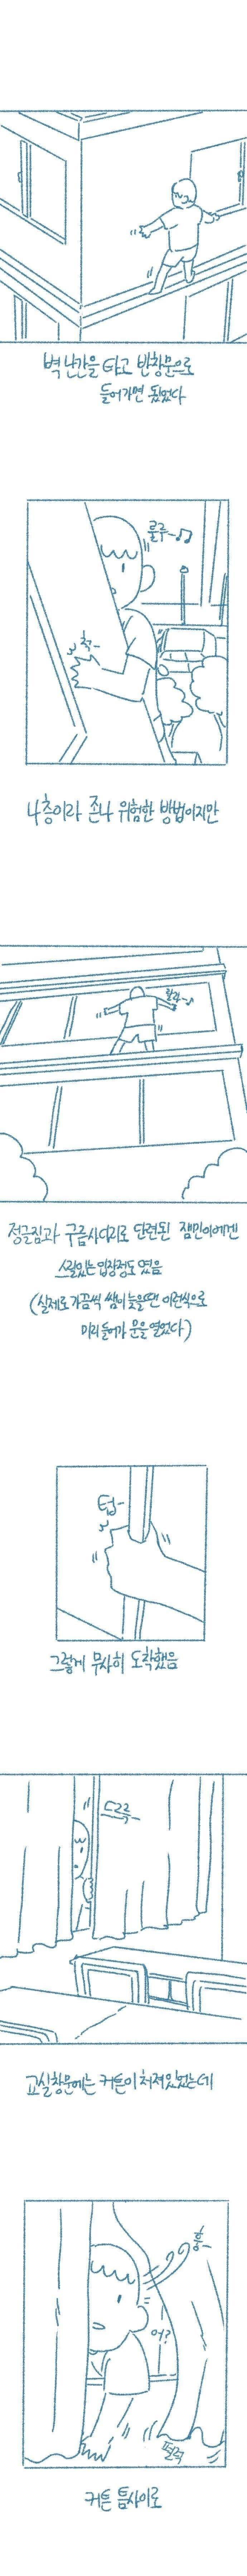 벽 난간을 타고 반창문으로
들어가면 됬었다
룰루~♪♫
척-
4층이라 존나 위험한 방법이지만
랄라~♪
정글짐과 구름사다리로 단련된 잼민이에겐
스릴있는 입장정도 였음
(실제로 가끔씩 쌤이 늦을땐 이런식으로
미리 들어가 문을 열었다)
텁-
그렇게 무사히 도착했음
드르륵-
교실창문에는 커튼이 쳐져있었는데
휭-
어?
펄럭
커튼 틈사이로